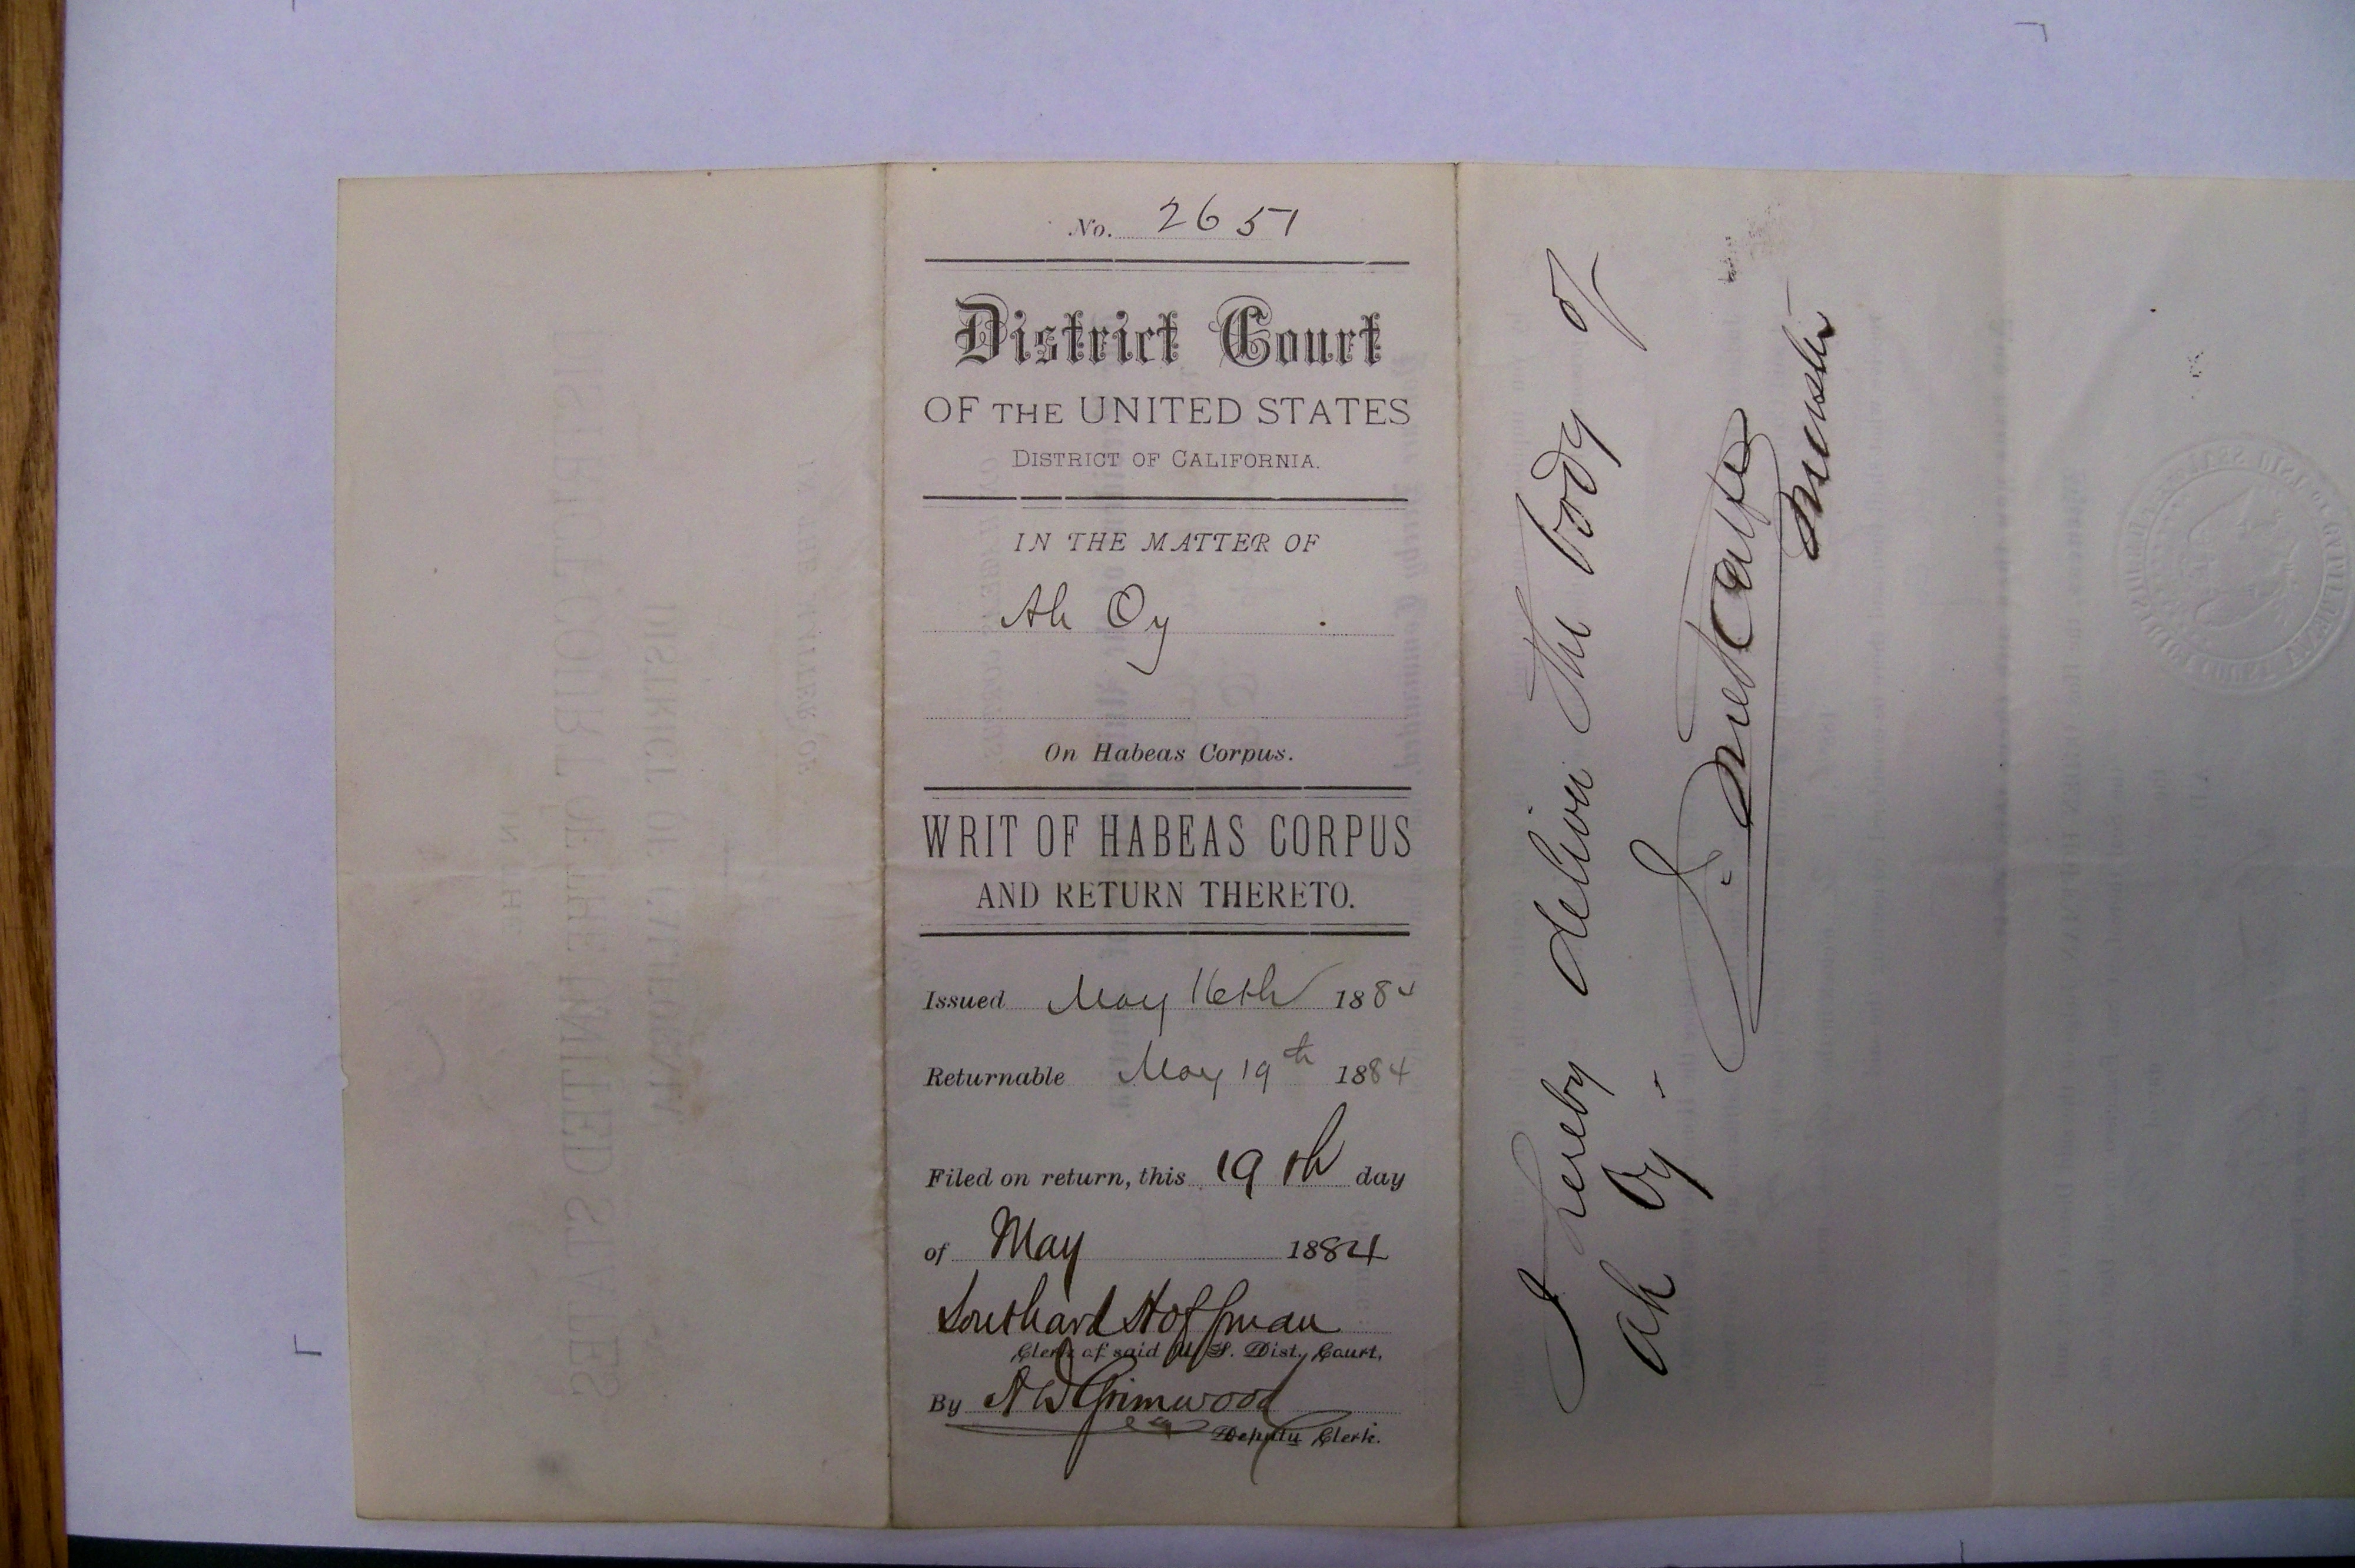 No. 2651
District Court
OF THE UNITED STATES
DISTRICT OF CALIFORNIA.
IN THE MATTER OF
Ah Oy
On Habeas Corpus.
WRIT OF HABEAS CORPUS
AND RETURN THERETO.
Issued May 16th 1884
Returnable May 19th 1884
Filed on return, this 19th day
of May 1884
Southard Hoffman
Clerk of said U. S. Dist. Court.
By Grimwood
Deputy Clerk.
I hereby deliver the body of
Ah Oy -
Metcalfe
Master